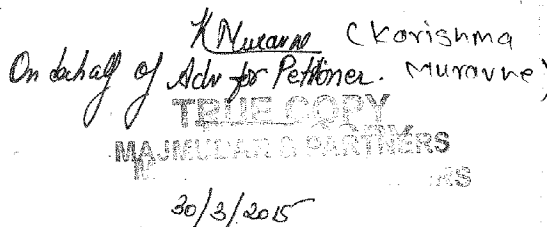 KMuravne (Karishma
On behalf of Adv for Petitioner. Muravne)
TRUE COPY
MAJMUDAR & PARTNERS
30/3/2015